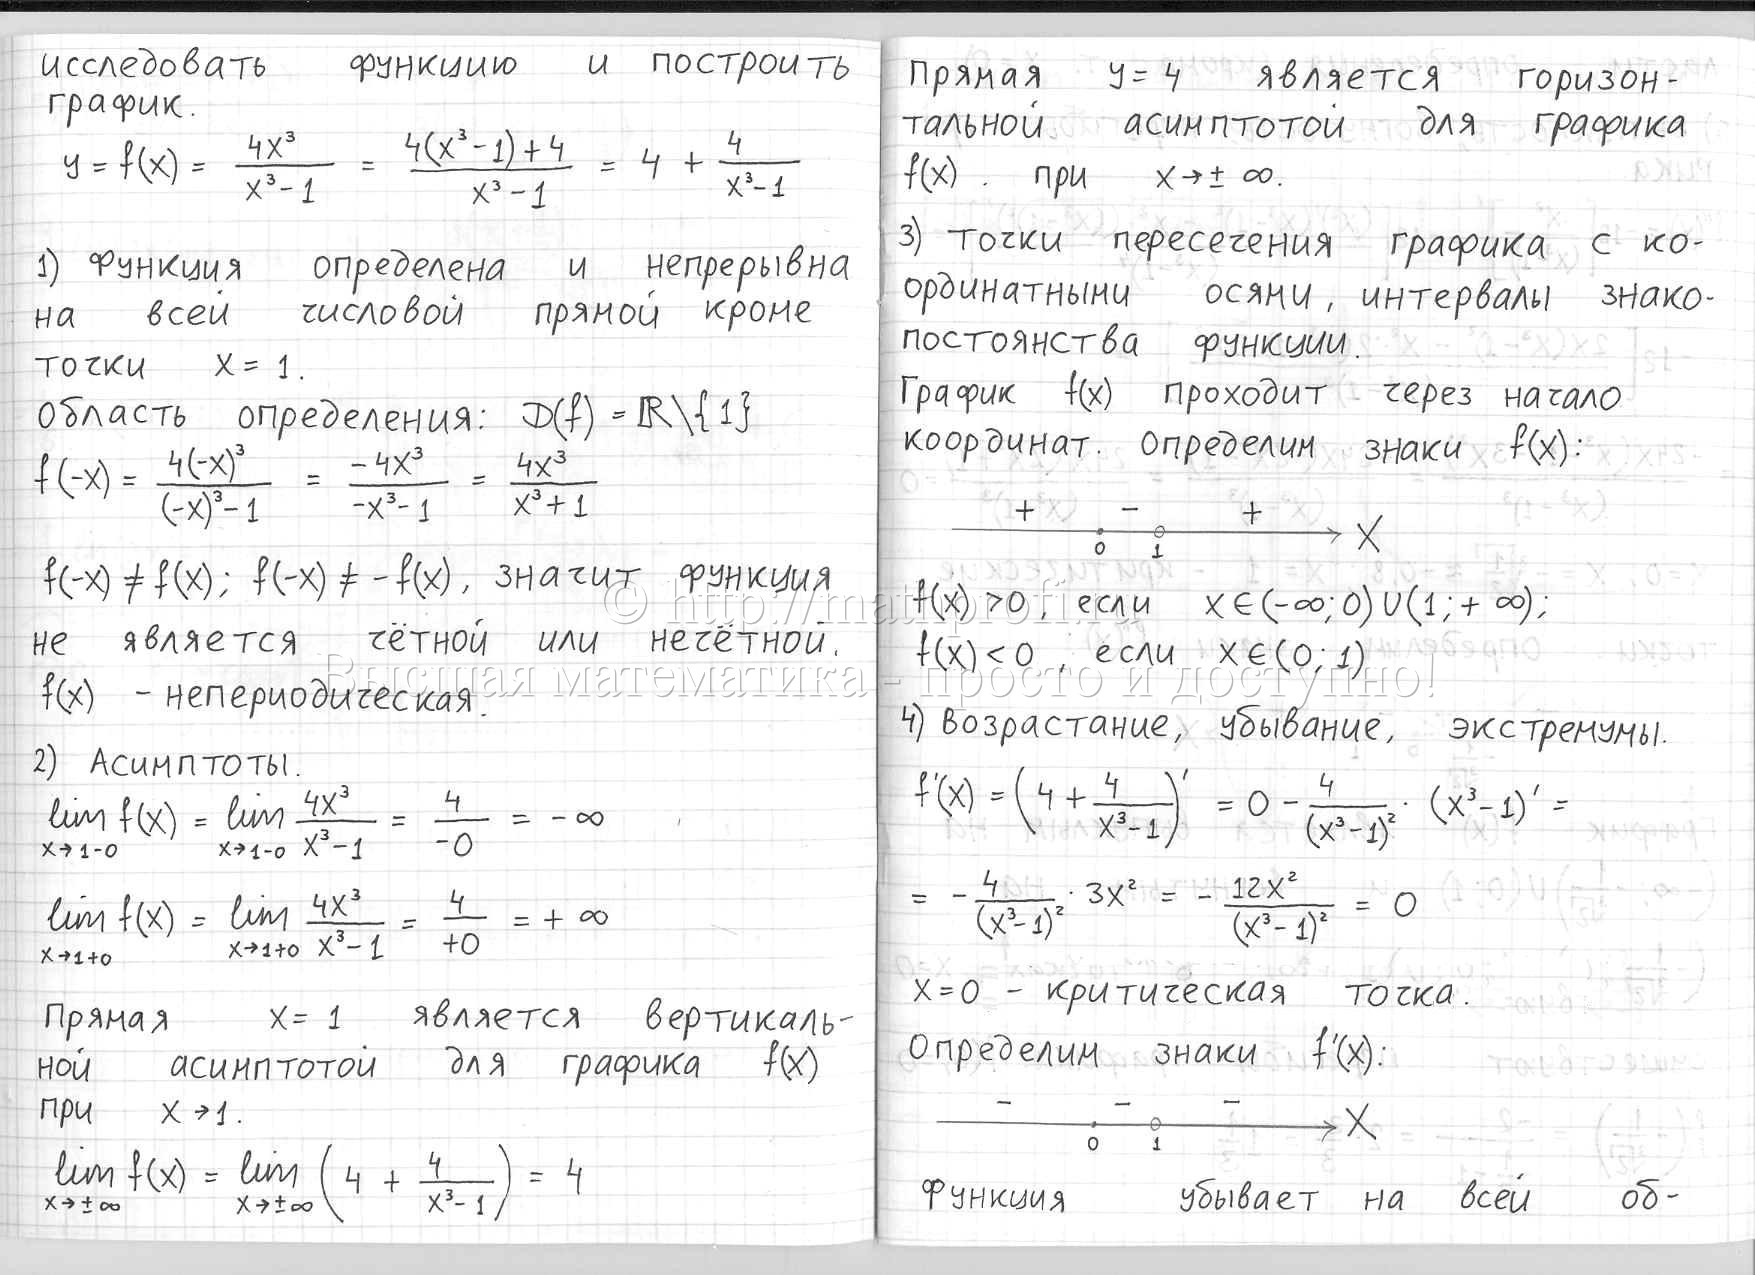 исследовать функцию и построить
график.
y = f(x) = 4x³/(x³-1) = (4(x³-1)+4)/(x³-1) = 4 + 4/(x³-1)
1) Функция определена и непрерывна
на всей числовой прямой кроме
точки x = 1.
Область определения: D(f) = ℝ\{1}
f(-x) = 4(-x)³/((-x)³-1) = -4x³/(-x³-1) = 4x³/(x³+1)
f(-x) ≠ f(x); f(-x) ≠ -f(x), значит функция
не является чётной или нечётной.
f(x) - непериодическая.
2) Асимптоты.
lim x→1-0 f(x) = lim x→1-0 4x³/(x³-1) = 4/-0 = -∞
lim x→1+0 f(x) = lim x→1+0 4x³/(x³-1) = 4/+0 = +∞
Прямая x = 1 является вертикаль-
ной асимптотой для графика f(x)
при x→1.
lim x→±∞ f(x) = lim x→±∞ (4 + 4/(x³-1)) = 4
Прямая y = 4 является горизон-
тальной асимптотой для графика
f(x). при x→±∞.
3) Точки пересечения графика с ко-
ординатными осями, интервалы знако-
постоянства функции.
График f(x) проходит через начало
координат. Определим знаки f(x):
+ - +
0 1 X
f(x) > 0, если x∈(-∞;0)∪(1;+∞);
f(x) < 0, если x∈(0;1)
4) Возрастание, убывание, экстремумы.
f'(x) = (4 + 4/(x³-1))' = 0 - 4/(x³-1)² · (x³-1)' =
= - 4/(x³-1)² · 3x² = - 12x²/(x³-1)² = 0
x=0 - критическая точка.
Определим знаки f'(x):
- - -
0 1 X
Функция убывает на всей об-
© http://mathprofi.ru
Высшая математика - просто и доступно!